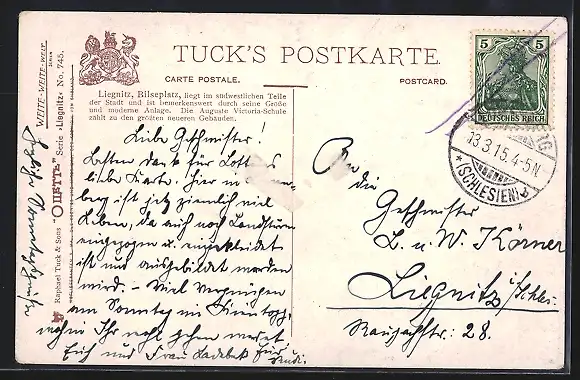 TUCK'S POSTKARTE.
CARTE POSTALE.
POSTCARD.
Liegnitz, Bilseplatz, liegt im südwestlichen Teile
der Stadt und ist bemerkenswert durch seine Größe
und moderne Anlage. Die Auguste Victoria-Schule
zählt zu den größten neueren Gebäuden.
WEITE-WEITE-WELT
Serie »Liegnitz« No. 745.
"OILETTE"
Raphael Tuck & Sons
5 5
DEUTSCHES REICH
13.3.15. 4-5N
*(SCHLESIEN)
Liebe Geschwister!
Besten Dank für Lottes
liebe Karte. Hier in
berg ist jetzt ziemlich viel
Leben, da auch noch Landsturm
eingezogen u. eingekleidet
ist und ausgebildet werden
wird. – Viel Vergnügen
am Sonntag im
wohin Ihr wohl gehen werdet
Euch und Frau
An die
Geschwister
L. u. W. Körner
Liegnitz i/Schles.
28.
Herzliche Sonntagsgrüße